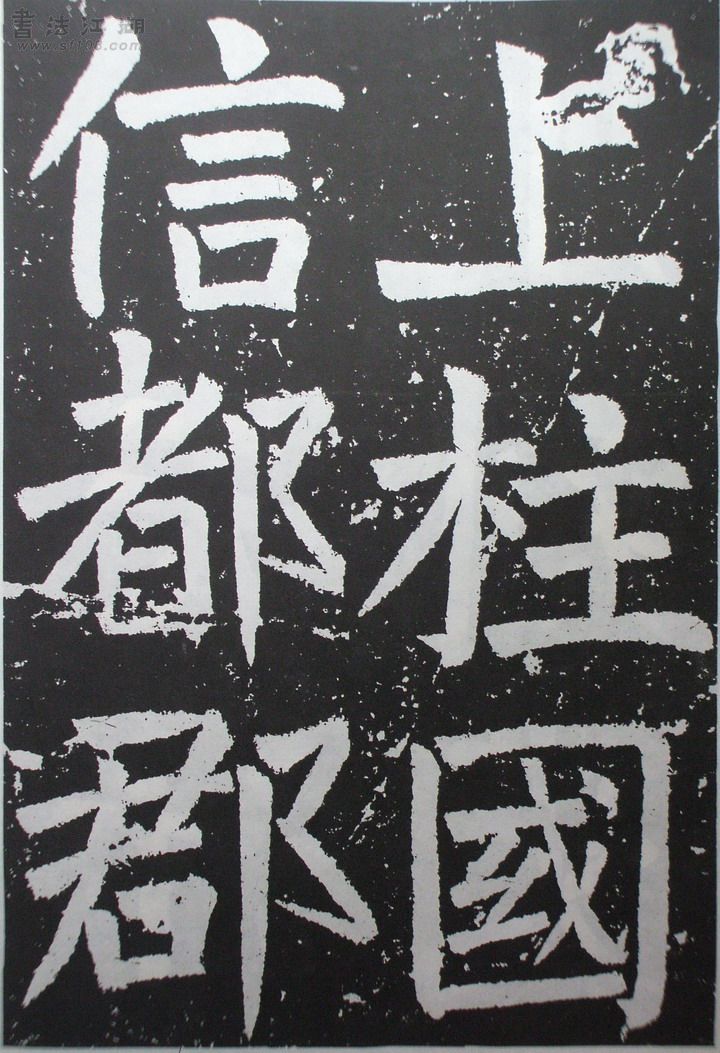 上柱國
信都郡
書法江湖
www.sf108.com